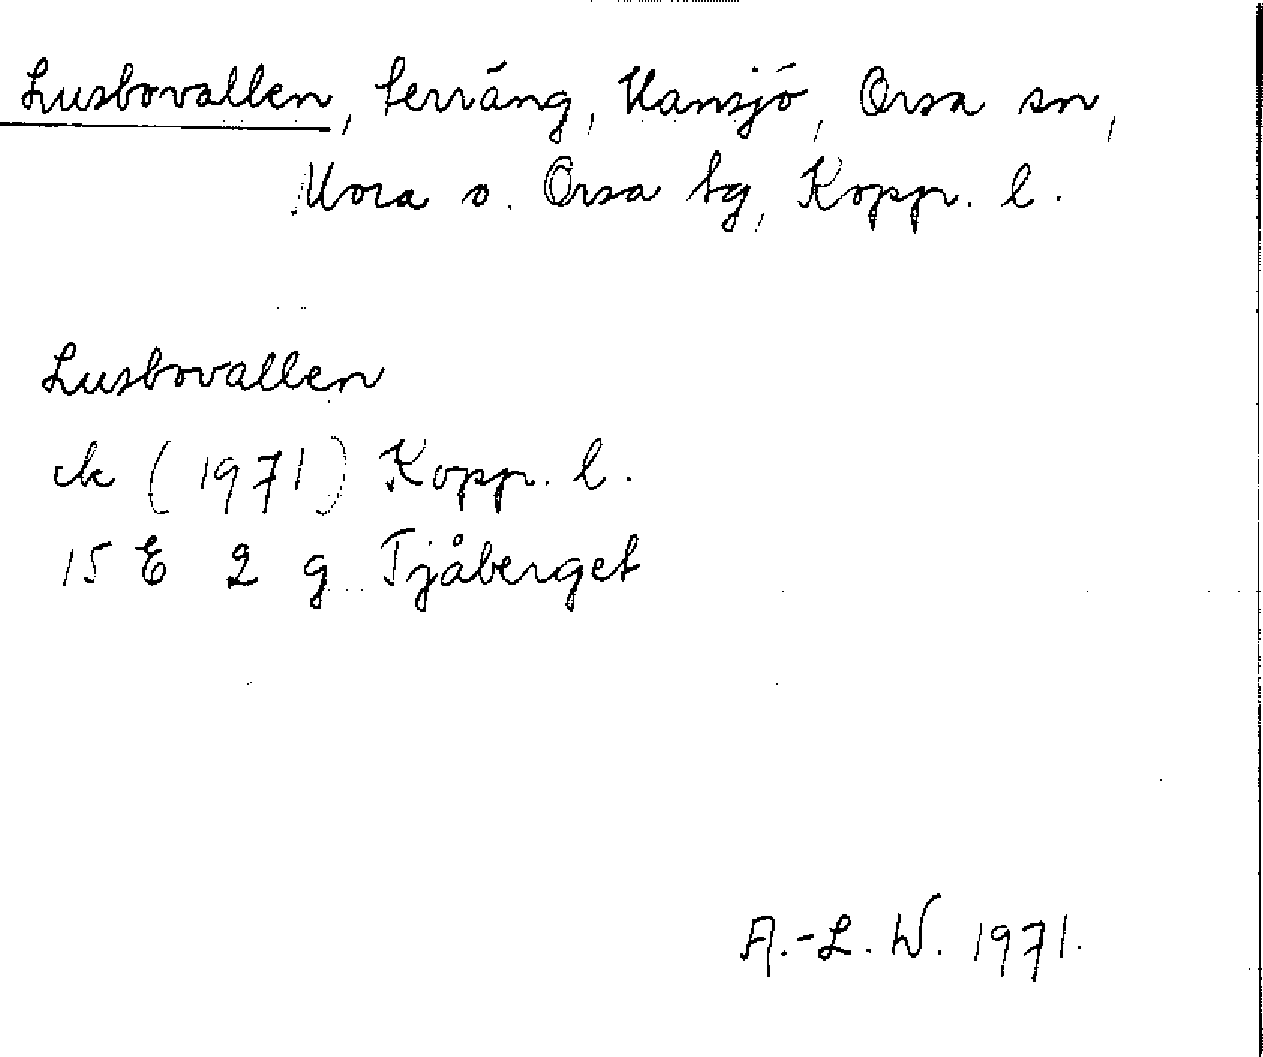 Lusbovallen, terräng, Hansjö, Orsa sn,
Mora o. Orsa tg, Kopp. l.
Lusbovallen
ek (1971) Kopp. l.
15 E 2 g Tjåberget
A.-L. W. 1971.